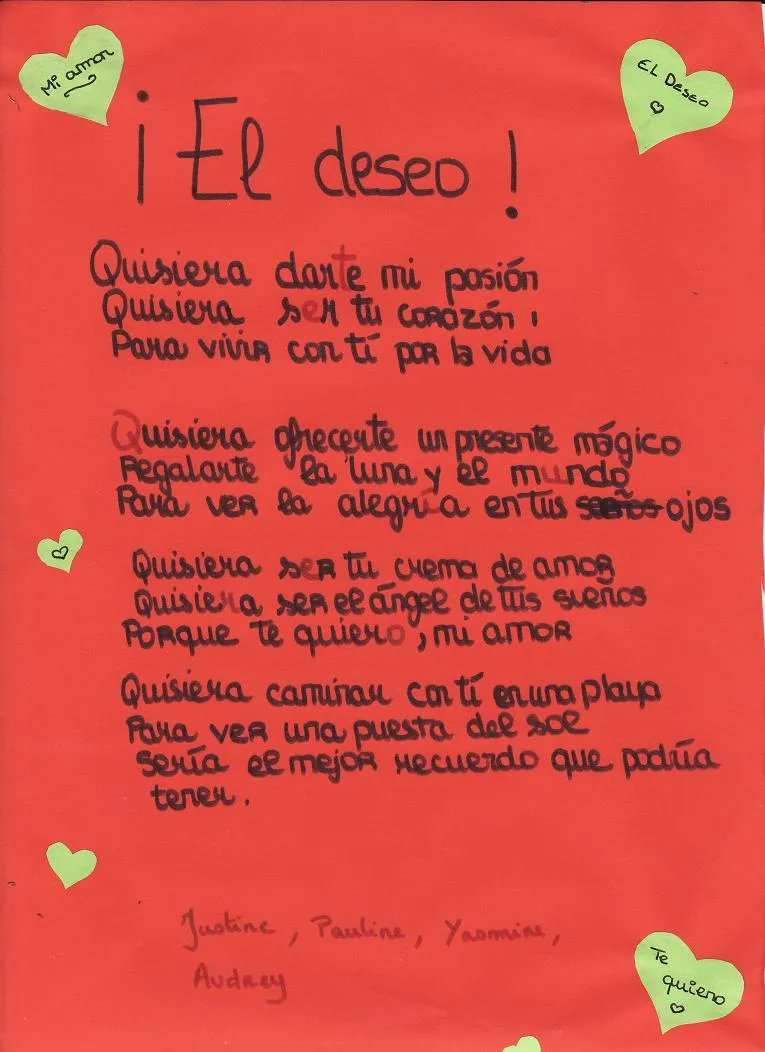 Mi amor
EL Deseo
¡El deseo!
Quisiera darte mi pasión
Quisiera ser tu corazón !
Para vivir con tí por la vida
Quisiera ofrecerte un presente mágico
Regalarte la luna y el mundo
Para ver la alegría en tus sueños ojos
Quisiera ser tu crema de amor
Quisiera ser el ángel de tus sueños
Porque te quiero, mi amor
Quisiera caminar con tí en una playa
Para ver una puesta del sol
Sería el mejor recuerdo que podría
tener.
Justine, Pauline, Yasmine,
Audrey
Te
quiero